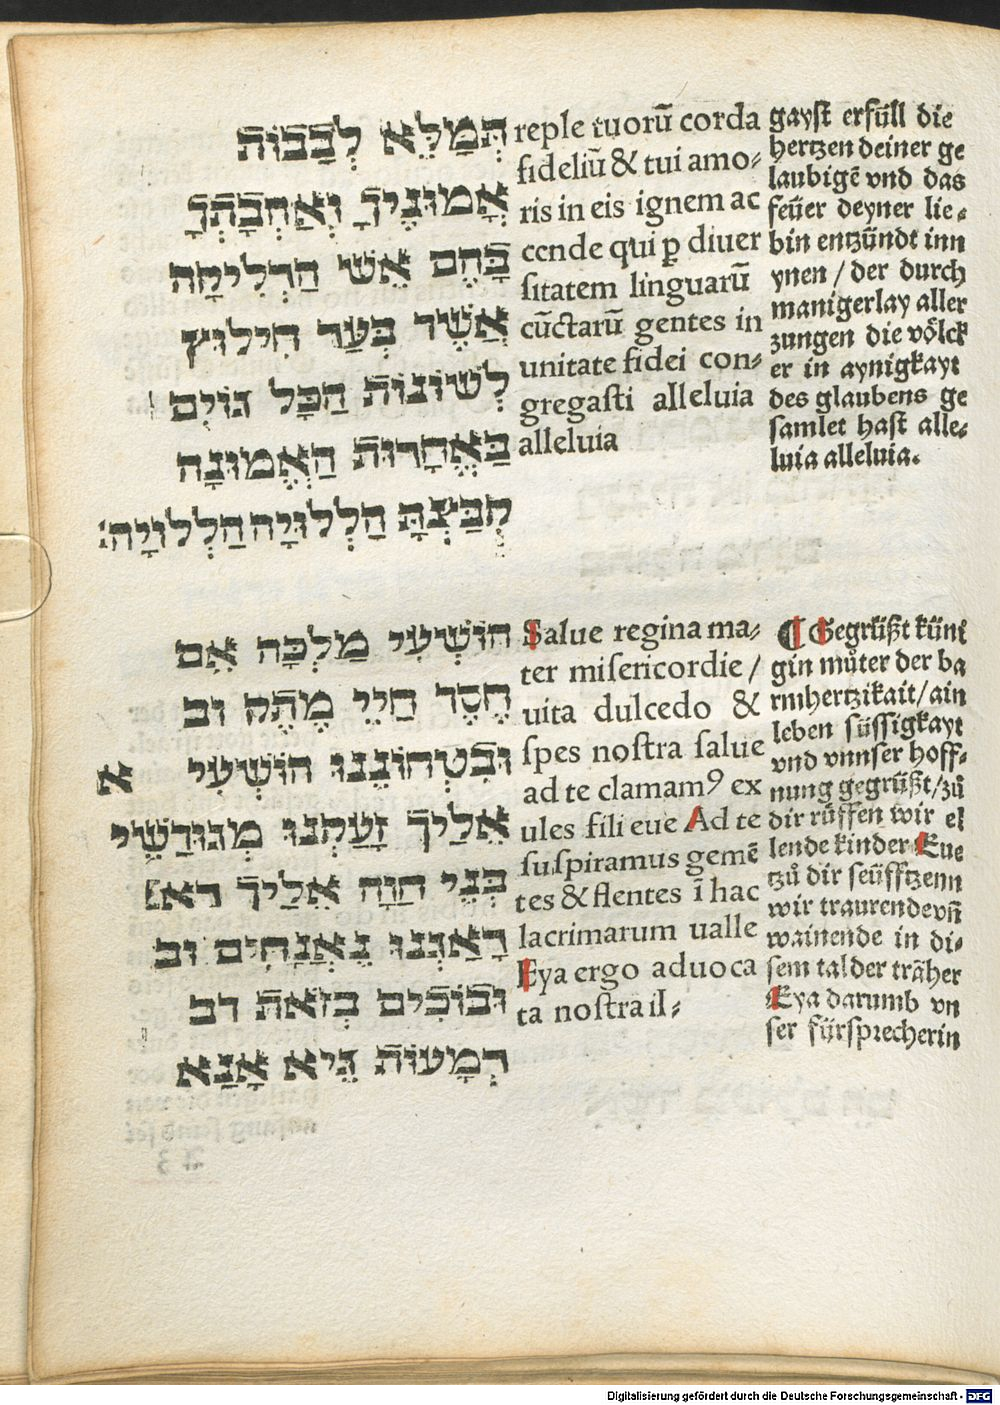 תְּמַלֵּא לְבָבוֹת
אֱמוּנֶיךָ וְאַהְבָתְךָ
בָּהֶם אֵשׁ הַדְלִיקָה
אֲשֶׁר בְּעַד חִילוּץ
לְשׁוֹנוֹת הַכָּל גּוֹיִם
בְּאֶחָדוּת הַאֱמוּנָה
קִבַּצְתָּ הַלְלוּיָה הַלְלוּיָה׃
reple tuorū corda
fideliū & tui amo-
ris in eis ignem ac
ccnde qui ꝑ diuer
ſitatem linguarū
cūctarū gentes in
unitate fidei con-
gregaſti alleluia
alleluia
gayſt erfüll die
hertzen deiner ge
laubigē vnd das
feüer deyner lie-
bin entzündt inn
ynen / der durch
manigerlay aller
zungen die vȯlck
er in aynigkayt
des glaubens ge
ſamlet haſt alle-
luia alleluia.
הוֹשִׁעִי מַלְכָּה אֵם
חֶסֶד חַיֵּי מֶתֶק וּב
וּבִטְחוֹנֵנוּ הוֹשִׁעִי א
אֵלַיִךְ זָעַקְנוּ מְגוּרָשֵׁי
בְּנֵי חַוָּה אֵלַיִךְ דא
דָאַגְנוּ נֶאֱנָחִים וב
וּבוֹכִים בְּזֹאת דב
דְמָעוֹת גֵּיא אָנָּא
Salue regina ma-
ter miſericordie /
uita dulcedo &
ſpes noſtra ſalue
ad te clamamꝰ ex
ules fili eue Ad te
ſuſpiramus gemē
tes & flentes ī hac
lacrimarum ualle
Eya ergo aduoca
ta noſtra il-
¶ Gegrüßt küni
gin můter der ba
rmhertzikait/ain
leben ſüſſigkayt
vnd vnnſer hoff-
nung gegrüßt/zů
dir rüffen wir el
lende kinder Eue
tzů dir ſeüfftzenn
wir traurende vñ
wainende in di-
ſem tal der trāher
Eya darumb vn
ſer fürſprecherin
Digitalisierung gefördert durch die Deutsche Forschungsgemeinschaft - DFG